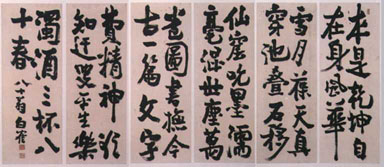 本是乾坤自
在身風華
雪月葆天真
穿池疊石移
仙窟吮墨濡
毫混世塵萬
卷圖書撫今
古一篇文字
費精神欲
知迂叟平生樂
濁酒三杯八
十春
八十翁白